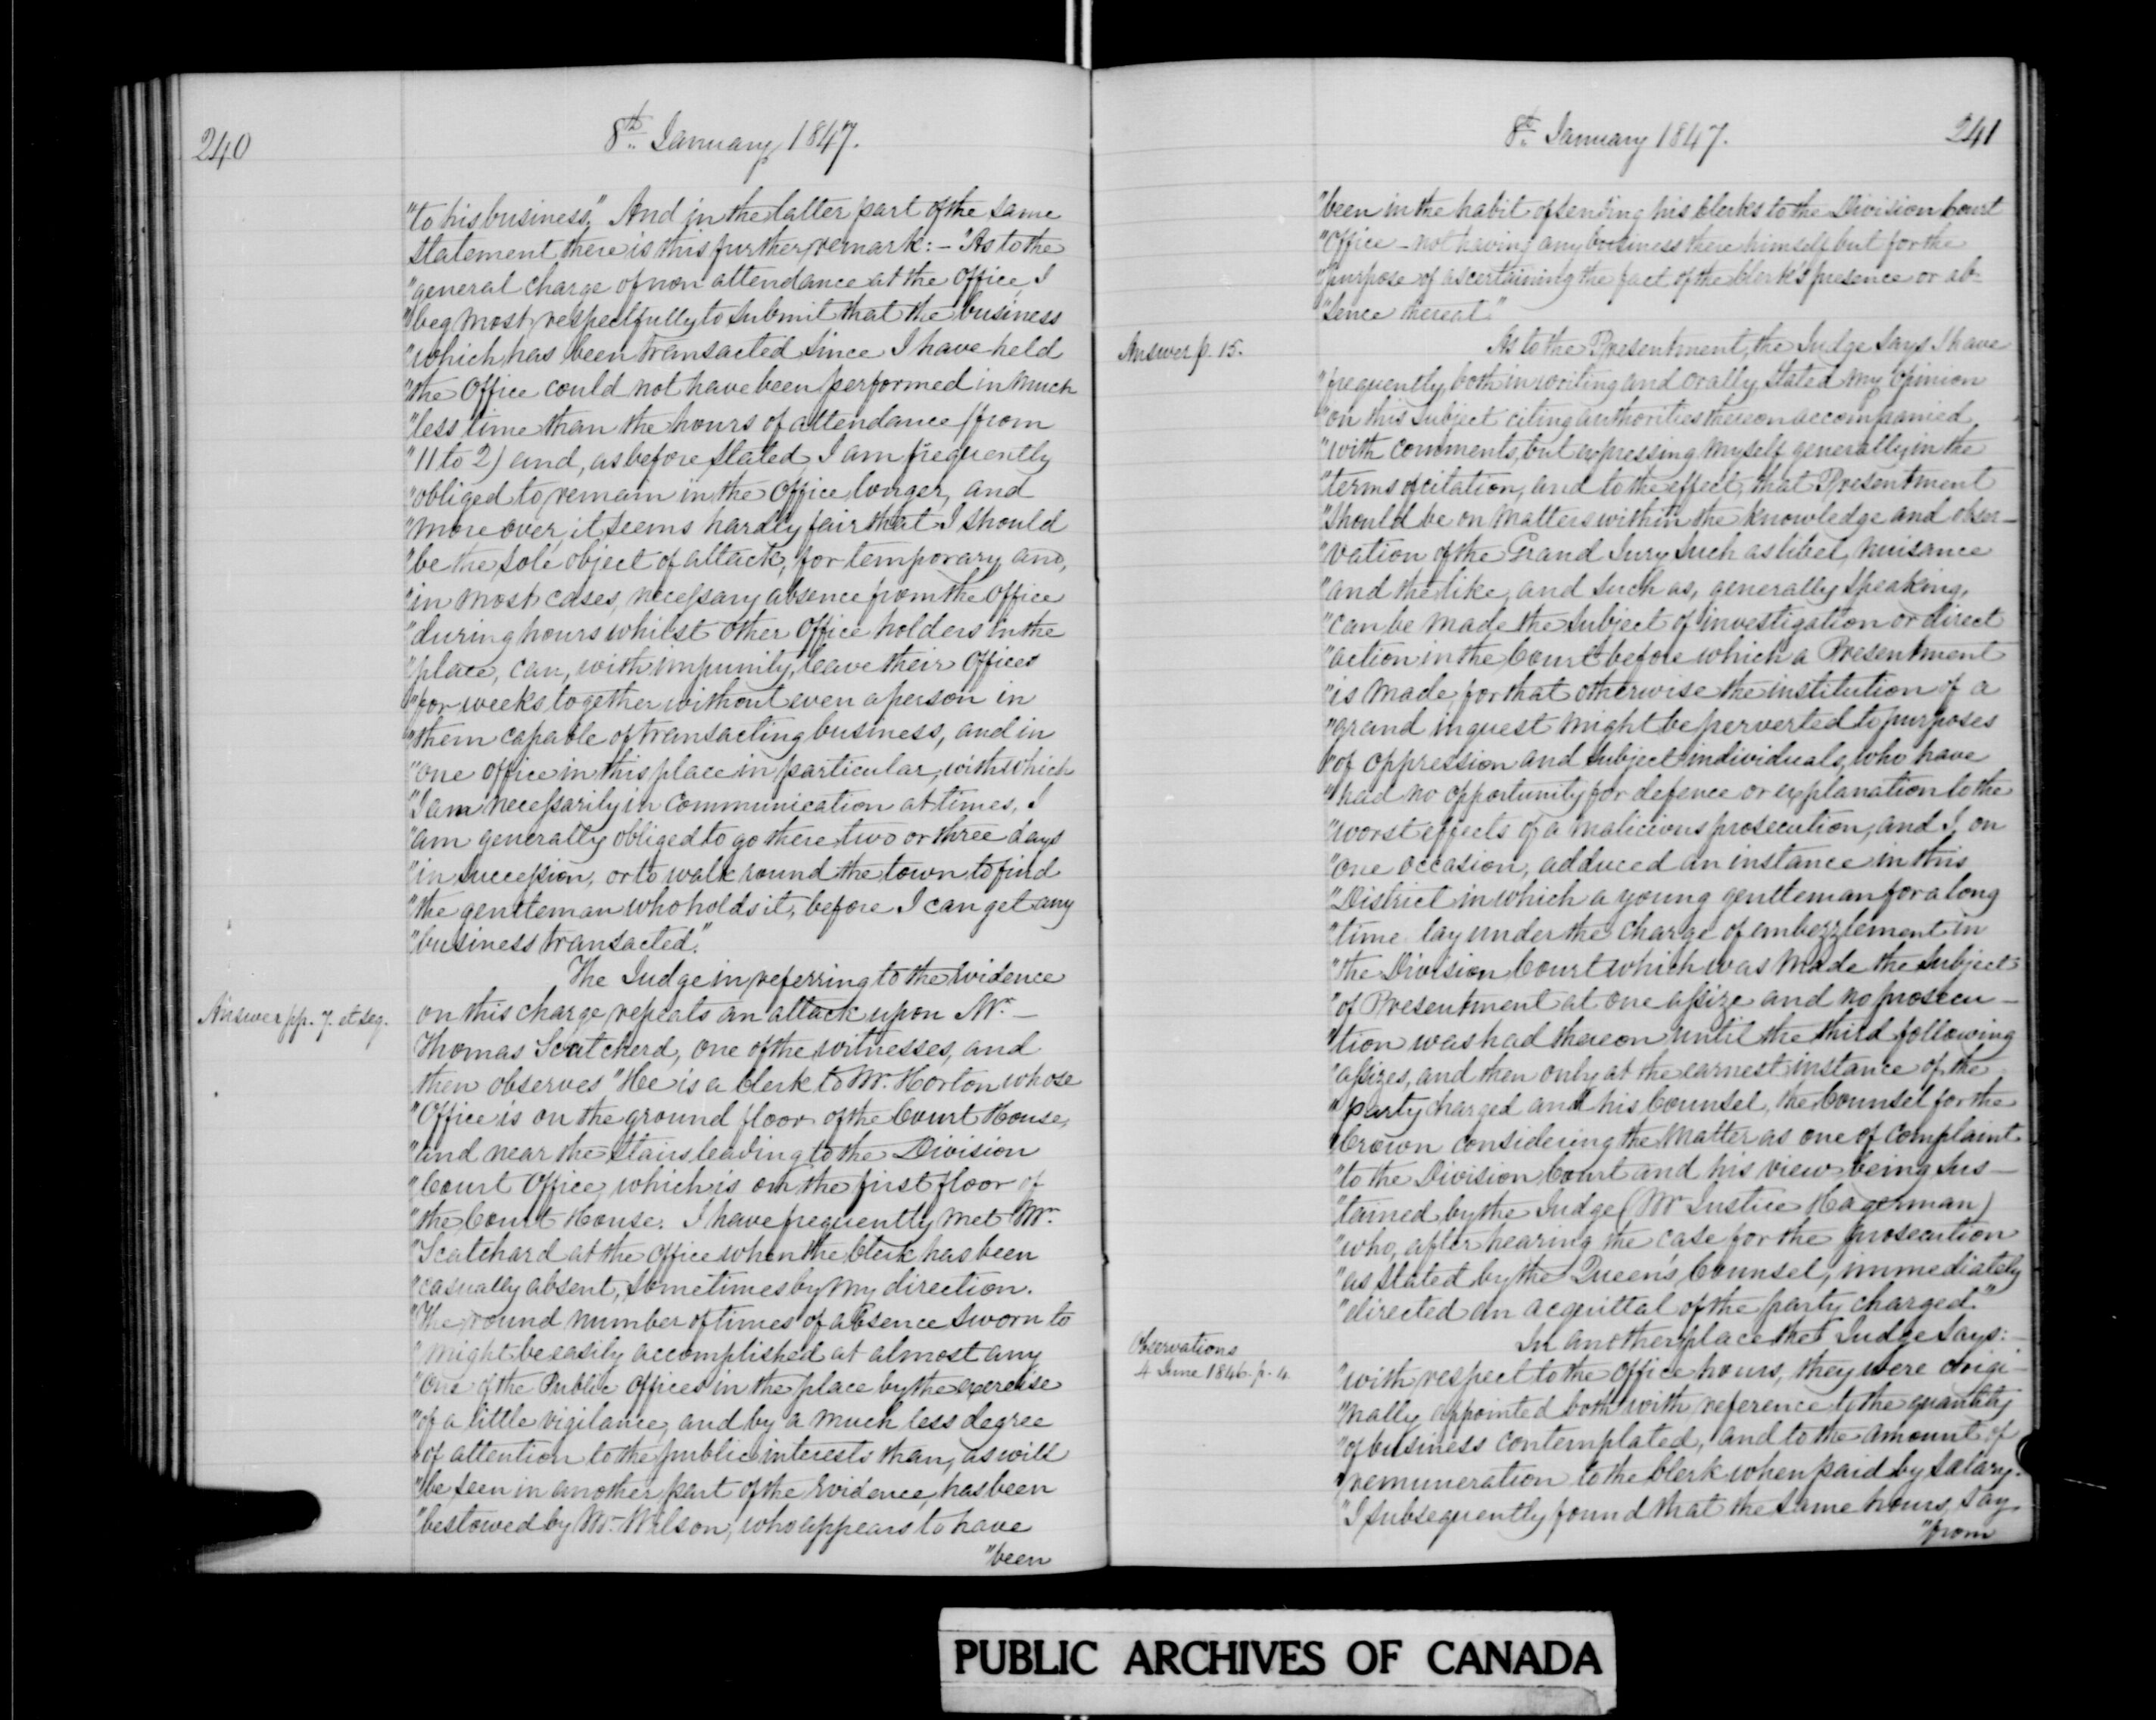 240
8th January 1847.
"to his business." And in the latter part of the same
statement there is this further remark:— "As to the
"general charge of non attendance at the office, I
"beg most respectfully to submit that the business
"which has been transacted since I have held
"the Office could not have been performed in much
"less time than the hours of attendance (from
"11 to 2) and, as before stated, I am frequently
"obliged to remain in the Office longer, and
"more over, it seems hardly fair that I should
"be the sole object of attack, for temporary and,
"in most cases, necessary absence from the Office
"during hours whilst other Office holders in the
"place, can, with impunity, leave their Offices
"for weeks together without even a person in
"them capable of transacting business, and in
"one office in this place in particular, with which
"I am necessarily in communication at times, I
"am generally obliged to go there two or three days
"in succession, or to walk round the town to find
"the gentleman who holds it, before I can get any
"business transacted."
The Judge in referring to the Evidence
Answer pp. 7. et seq.
on this charge repeats an attack upon Mr. —
Thomas Scatcherd, one of the witnesses, and
then observes "He is a Clerk to Mr. Horton whose
"Office is on the ground floor of the Court House,
"and near the stairs leading to the Division
"Court Office, which is on the first floor of
"the Court House. I have frequently met Mr.
"Scatchard at the Office when the Clerk has been
"casually absent, sometimes by my direction.
"The round number of times of absence sworn to
"might be easily accomplished at almost any
"one of the Public Offices in the place by the exercise
"of a little vigilance, and by a much less degree
"of attention to the public interests than, as will
"be seen in another part of the Evidence, has been
"bestowed by Mr. Wilson, who appears to have
"been
8th January 1847.
241
"been in the habit of sending his Clerks to the Division Court
"Office — not having any business there himself, but for the
"purpose of ascertaining the fact of the Clerk's presence or ab-
"sence thereat."
Answer p. 15.
As to the Presentment, the Judge says I have
"frequently, both in writing and orally, stated my opinion
"on this subject citing authorities thereon accompanied
"with comments, but expressing myself generally in the
"terms of citation, and to the effect, that Presentment
"should be on matters within the knowledge and obser—
"vation of the Grand Jury such as libel, nuisance
"and the like, and such as, generally speaking,
"can be made the subject of investigation or direct
"action in the Court before which a Presentment
"is made, for that otherwise the institution of a
"grand inquest might be perverted to purposes
"of oppression and subject individuals, who have
"had no opportunity for defence or explanation to the
"worst effects of a malicious prosecution, and I, on
"one occasion, adduced an instance in this
"District in which a young gentleman for a long
"time lay under the charge of embezzlement in
"the Division Court which was made the subject
"of Presentment at one assize and no prosecu—
"tion was had thereon until the third following
"assizes, and then only at the earnest instance of the
"party charged and his Counsel, the Counsel for the
"Crown considering the matter as one of complaint
"to the Division Court and his view being sus—
"tained by the Judge (Mr Justice Hagerman)
"who, after hearing the case for the prosecution
"as stated by the Queen's Counsel, immediately
"directed an acquittal of the party charged."
In another place the Judge says:—
Observations
4 June 1846. p. 4.
"with respect to the Office hours, they were origi-
"nally appointed both with reference to the quantity
"of business contemplated, and to the amount of
"remuneration to the Clerk when paid by salary.
"I subsequently found that the same hours, say
"from
PUBLIC ARCHIVES OF CANADA